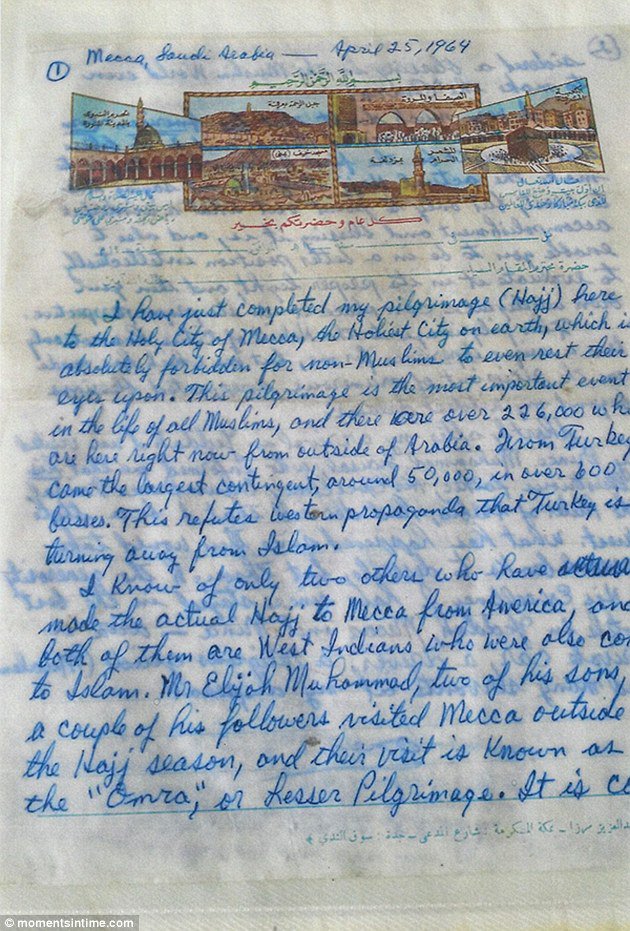 ① Mecca, Saudi Arabia — April 25, 1964
بسم الله الرحمن الرحيم
الحرم النبوي
بالمدينة المنورة
جبل الرحمة بعرفة
الصفا والمروة
مسجد خيف (منى)
المشعر
الحرام
كل عام وحضرتكم بخير
حضرة محترم المقام السيد
I have just completed my pilgrimage (Hajj) here
to the Holy City of Mecca, the Holiest City on earth, which is
absolutely forbidden for non-Muslims to even rest their
eyes upon. This pilgrimage is the most important event
in the life of all Muslims, and there are over 226,000 who
are here right now from outside of Arabia. From Turkey
came the largest contingent, around 50,000, in over 600
busses. This refutes western propaganda that Turkey is
turning away from Islam.
I know of only two others who have actua
made the actual Hajj to Mecca from America, and
both of them are West Indians who were also con
to Islam. Mr Elijah Muhammad, two of his sons,
a couple of his followers visited Mecca outside
the Hajj season, and their visit is known as
the "Omra," or Lesser Pilgrimage. It is co
مكة المكرمة : شارع المدعى – جدة : سوق الندى
© momentsintime.com